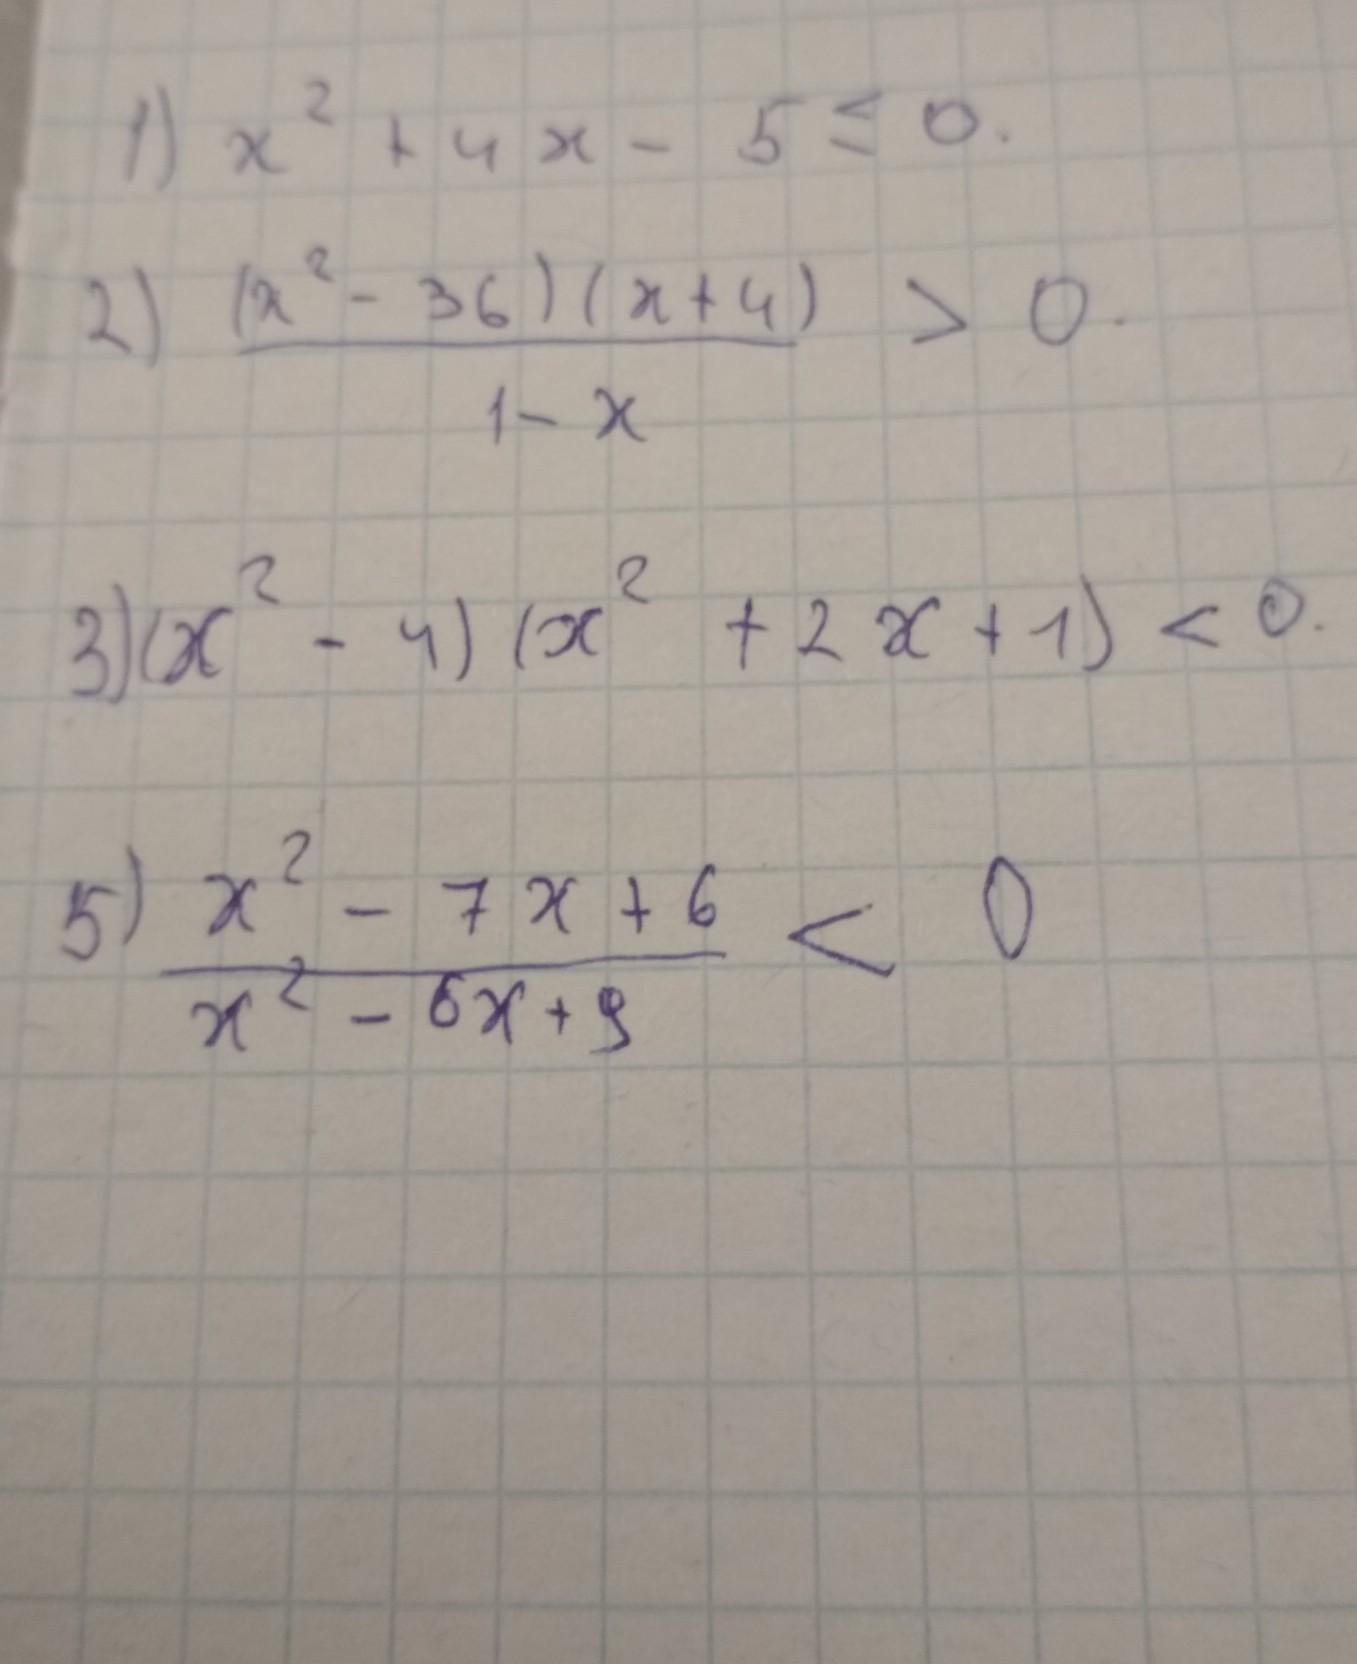 1) x² + 4x - 5 ≤ 0.
2) (x² - 36)(x + 4) / 1 - x > 0.
3) (x² - 4)(x² + 2x + 1) < 0.
5) x² - 7x + 6 / x² - 6x + 9 < 0